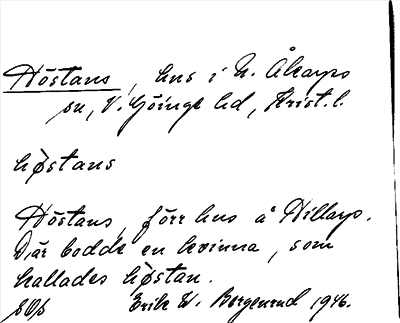 Höstans, hus i N. Åkarps
sn, V. Göinge hd, Krist. l.
høstans
Höstans, förr hus å Hillarp.
Där bodde en kvinna, som
kallades høstan.
Erik W. Bergenrud 1946.